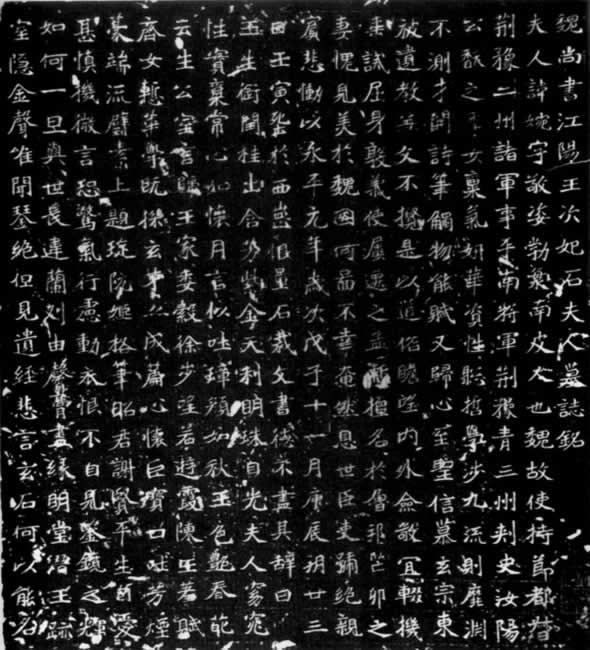 魏尚書江陽王次妃石夫人墓誌銘
夫人諱婉字敬姿勃海南皮人也魏故使持節都督
荊豫二州諸軍事平南將軍荊豫青三州刺史汝陽
公馛之季女稟氣妍華資性聰哲學涉九流則靡淵
不測才關詩筆觸物能賦又歸心至聖信慕玄宗東
被遺教無文不攬是以道俗瞻望內外僉敬冝輟機
棄識屈身敦義使屢遷之孟慚擅名於魯邦芒卯之
妻愧見美於魏國何啚不幸奄然息世臣吏踊絕親
賓悲慟以永平元年歲次戊子十一月庚辰朔廿三
日壬寅塟於西崗但量石裁文書德不盡其辭曰
玉生銜閏桂出含芬於今天利明珠自光夫人窈窕
性實稟常心如懷月言似吐璋頍如秋玉色艷春葩
云生公室言歸王家委縠徐步望若遊霞陳生著賦
齊女慙華學既採玄才亦成篇心懷巨寶口吐芳煙
藻端流麗素上題琁阮姬格筆昭君謝賢平生節愛
甚慎機微言恐驚氣行慮動衣恨不自見鑒鏡之輝
如何一旦與世長違蘭刈由馨膏盡緣明堂潛玉跡
室隱金聲唯聞琴絕但見遺經悲言玄石何以能名